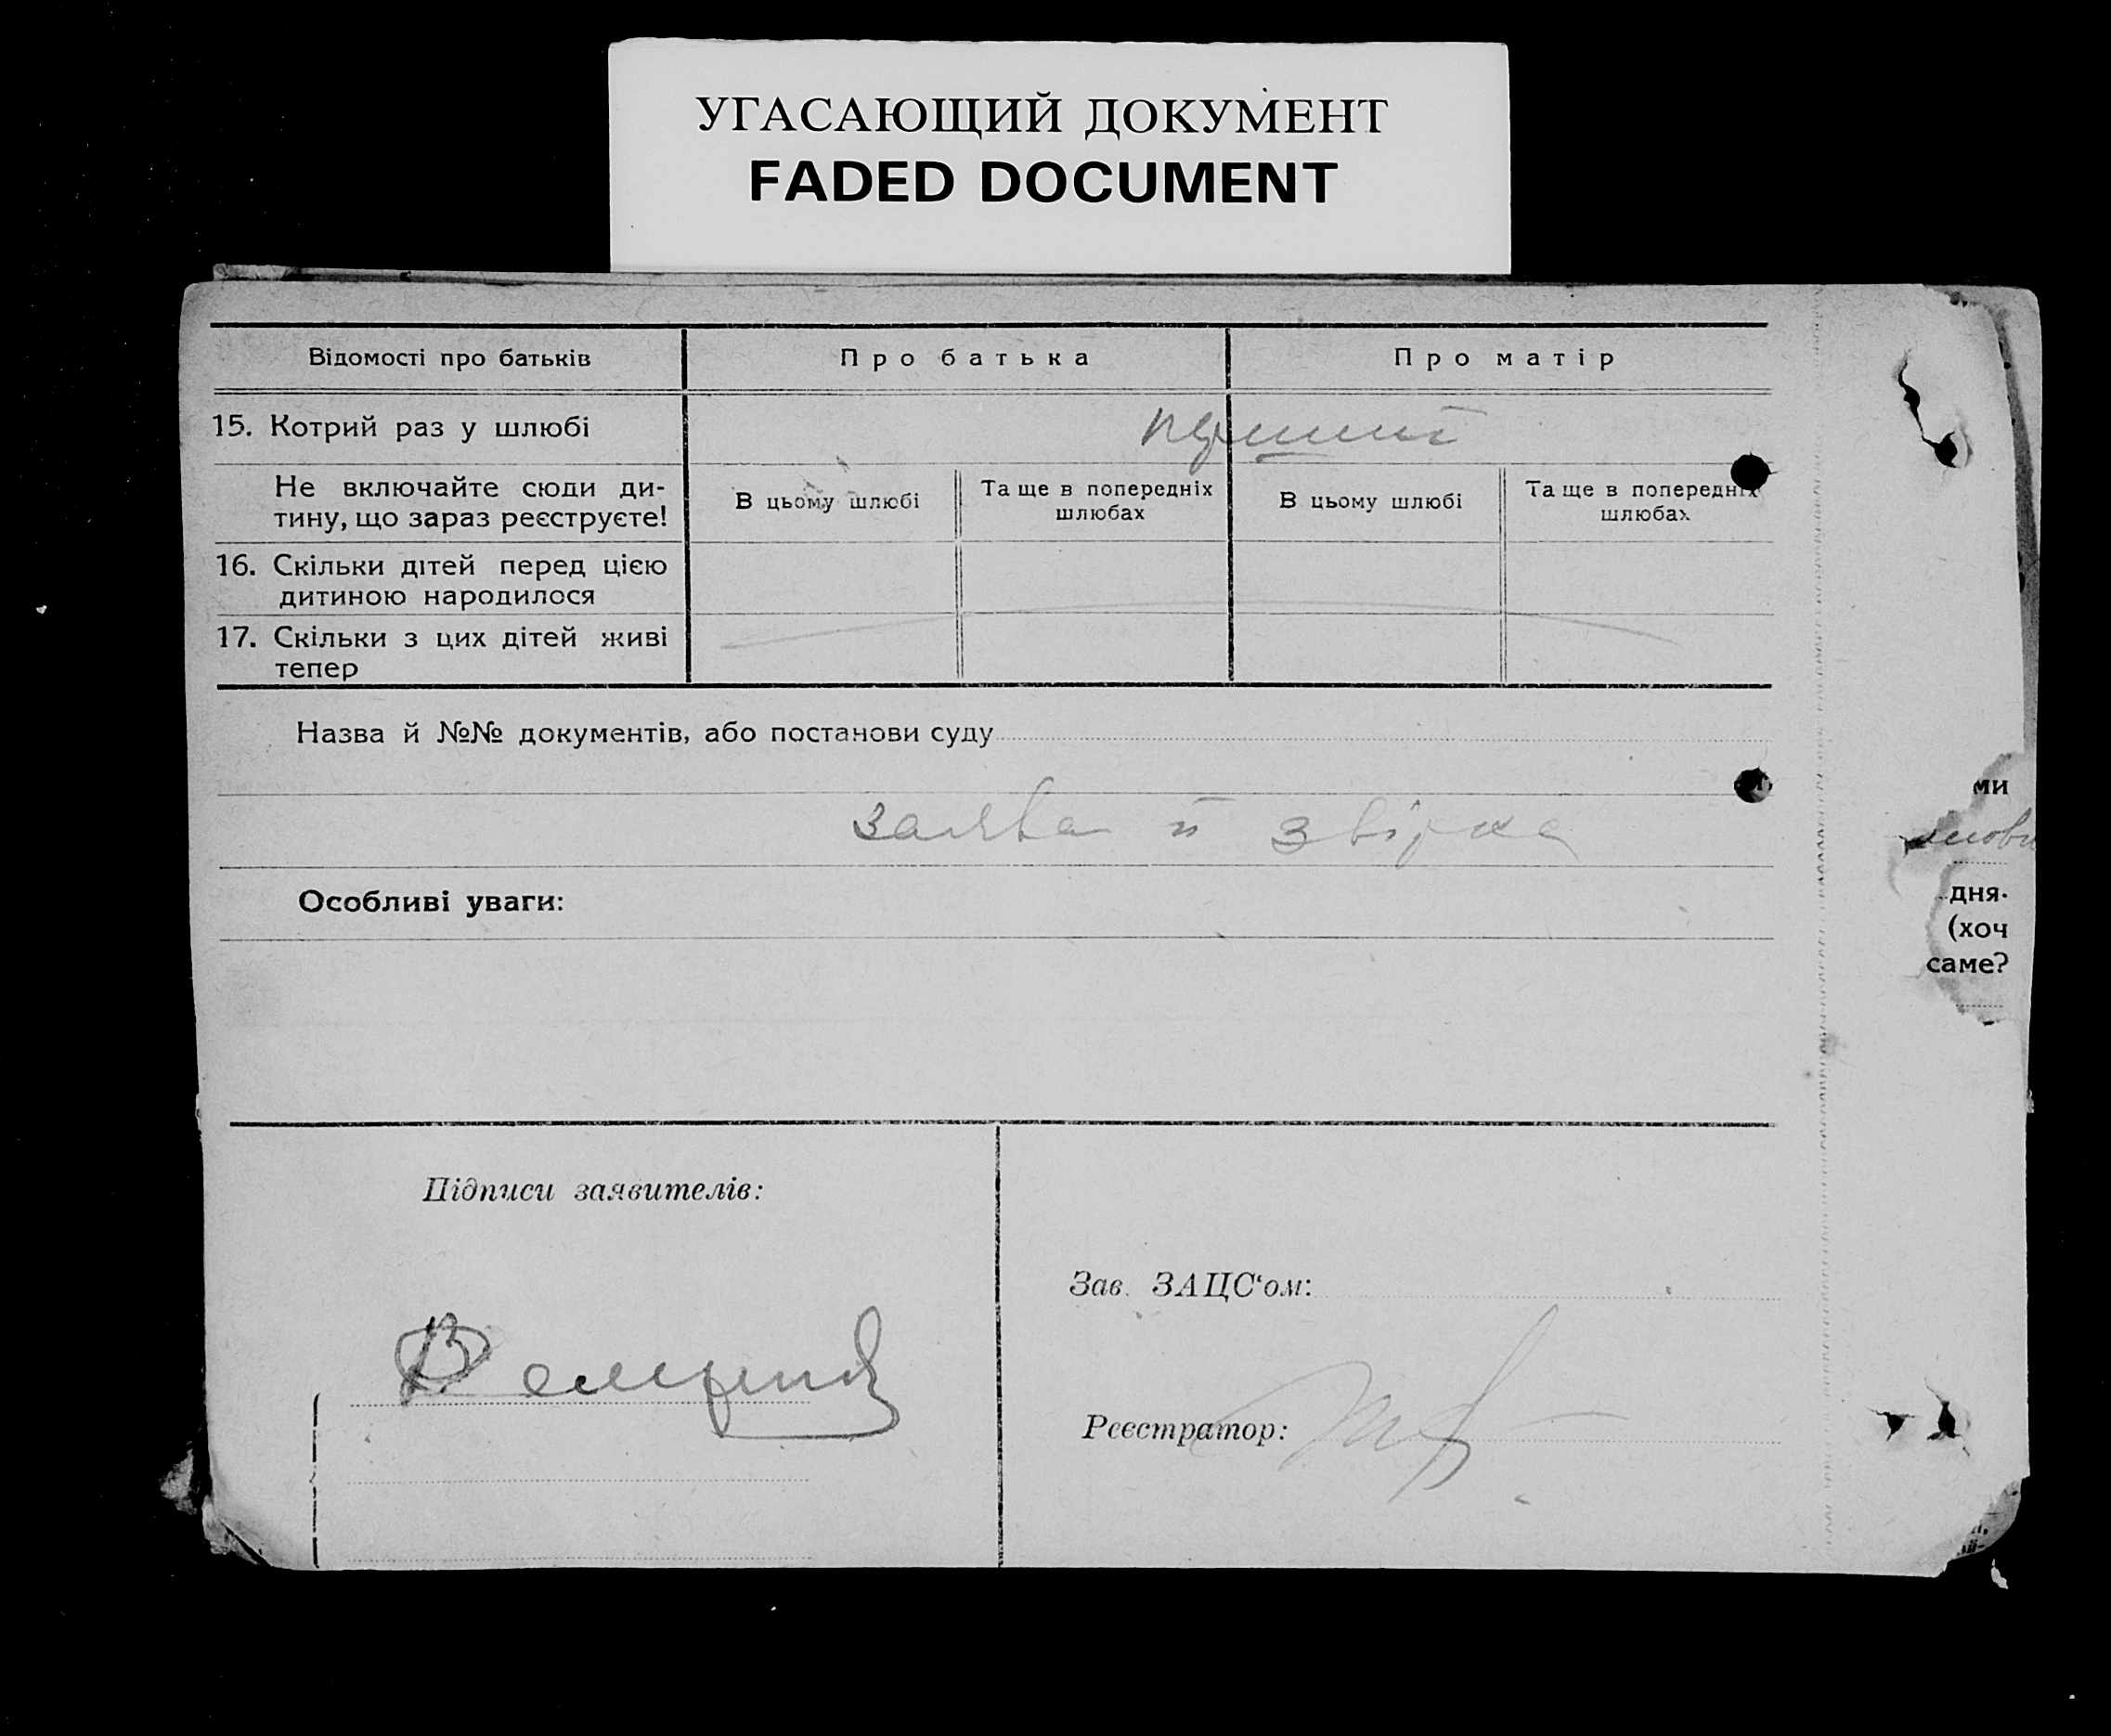 УГАСАЮЩИЙ ДОКУМЕНТ
FADED DOCUMENT
Відомості про батьків
Про батька
Про матір
15. Котрий раз у шлюбі
перший
Не включайте сюди ди-
тину, що зараз реєструєте!
В цьому шлюбі
Та ще в попередніх
шлюбах
В цьому шлюбі
Та ще в попередніх
шлюбах
16. Скільки дітей перед цією
дитиною народилося
17. Скільки з цих дітей живі
тепер
Назва й №№ документів, або постанови суду
ми
заява й звірка
Особливі уваги:
дня.
(хоч
саме?
Підписи заявителів:
Зав. ЗАЦС‘ом:
Реєстратор: